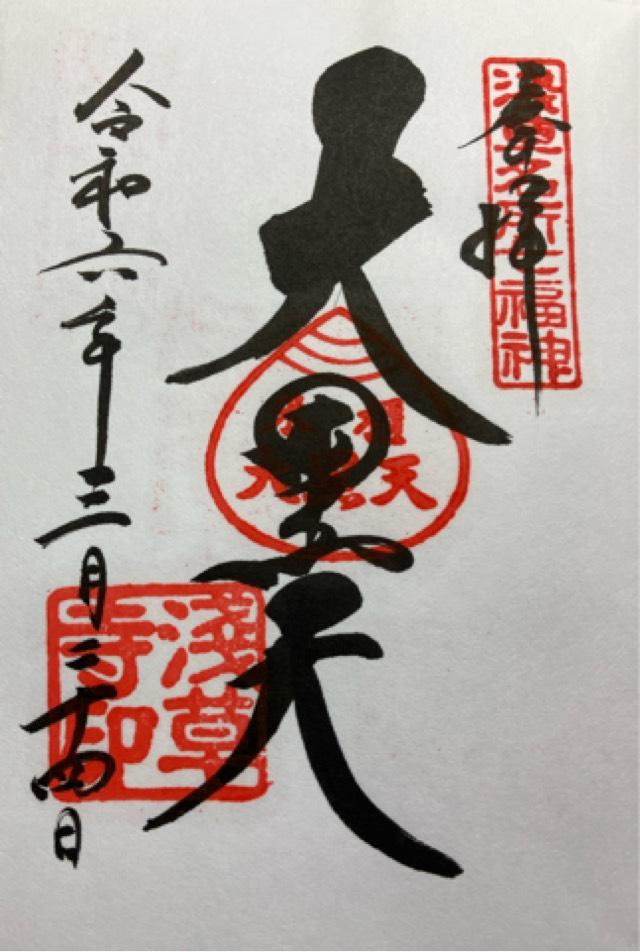 奉拝
浅草名所七福神
大黒天
令和六年三月二十四日
淺草
寺印